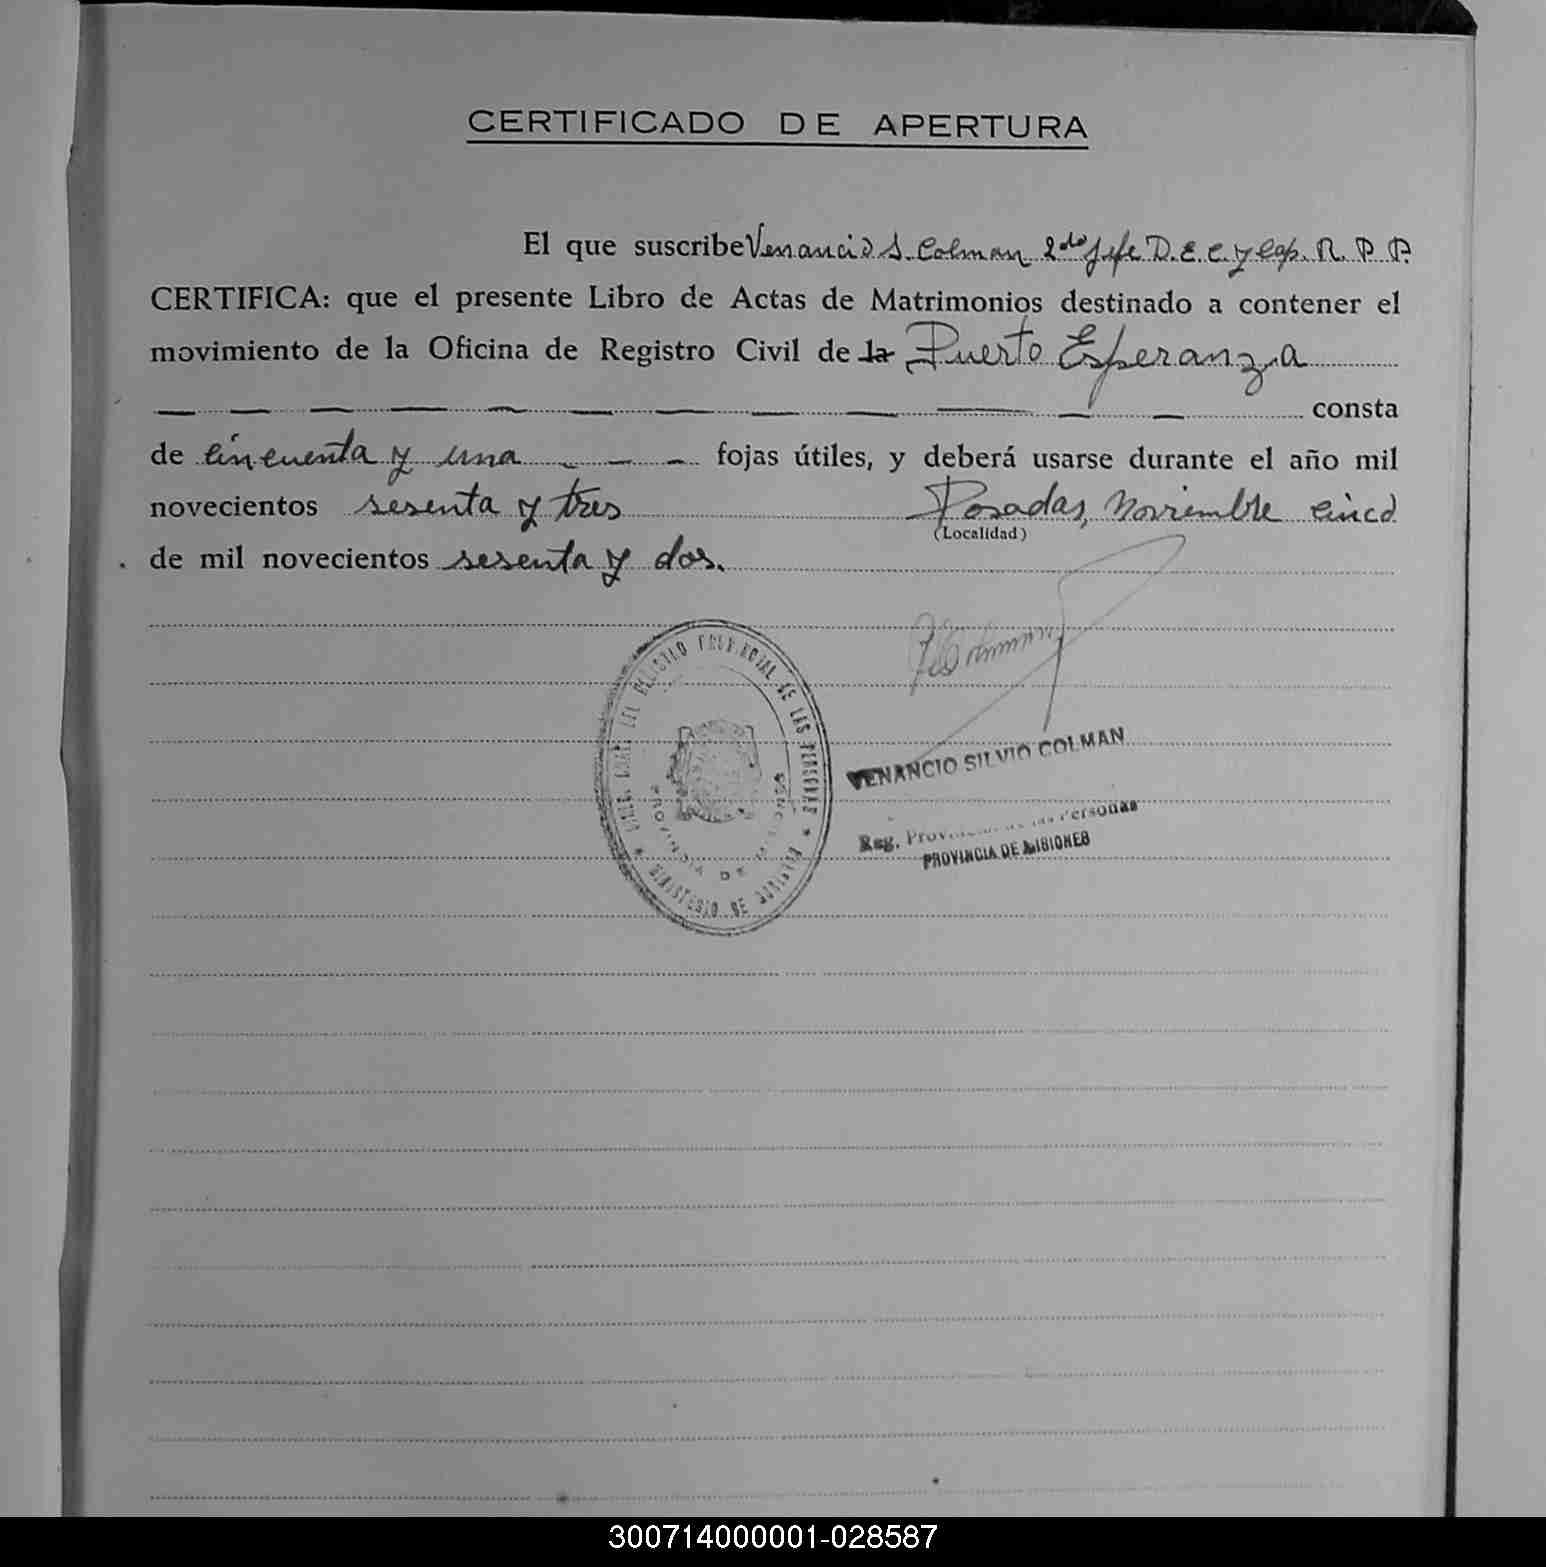 CERTIFICADO DE APERTURA
El que suscribe Venancio S. Colman 2do Jefe D. E. C. y Cap. R. P. P.
CERTIFICA: que el presente Libro de Actas de Matrimonios destinado a contener el
movimiento de la Oficina de Registro Civil de la Puerto Esperanza
consta
de cincuenta y una fojas útiles, y deberá usarse durante el año mil
novecientos sesenta y tres Posadas, Noviembre cinco
(Localidad)
de mil novecientos sesenta y dos.
DEL REGISTRO PROVINCIAL DE LAS PERSONAS
MINISTERIO DE GOBIERNO
PROVINCIA DE MISIONES
VENANCIO SILVIO COLMAN
Reg. Provincial de las Personas
PROVINCIA DE MISIONES
300714000001-028587